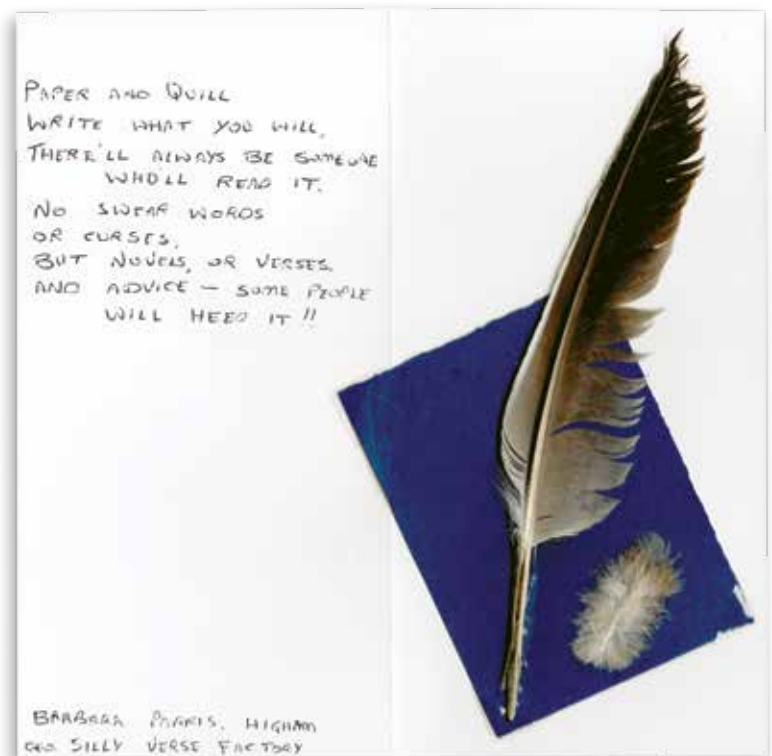 PAPER AND QUILL
WRITE WHAT YOU WILL,
THERE'LL ALWAYS BE SOMEONE
WHO'LL READ IT.
NO SWEAR WORDS
OR CURSES,
BUT NOVELS, OR VERSES.
AND ADVICE — SOME PEOPLE
WILL HEED IT!!
BARBARA PARRIS. HIGHAM
SILLY VERSE FACTORY